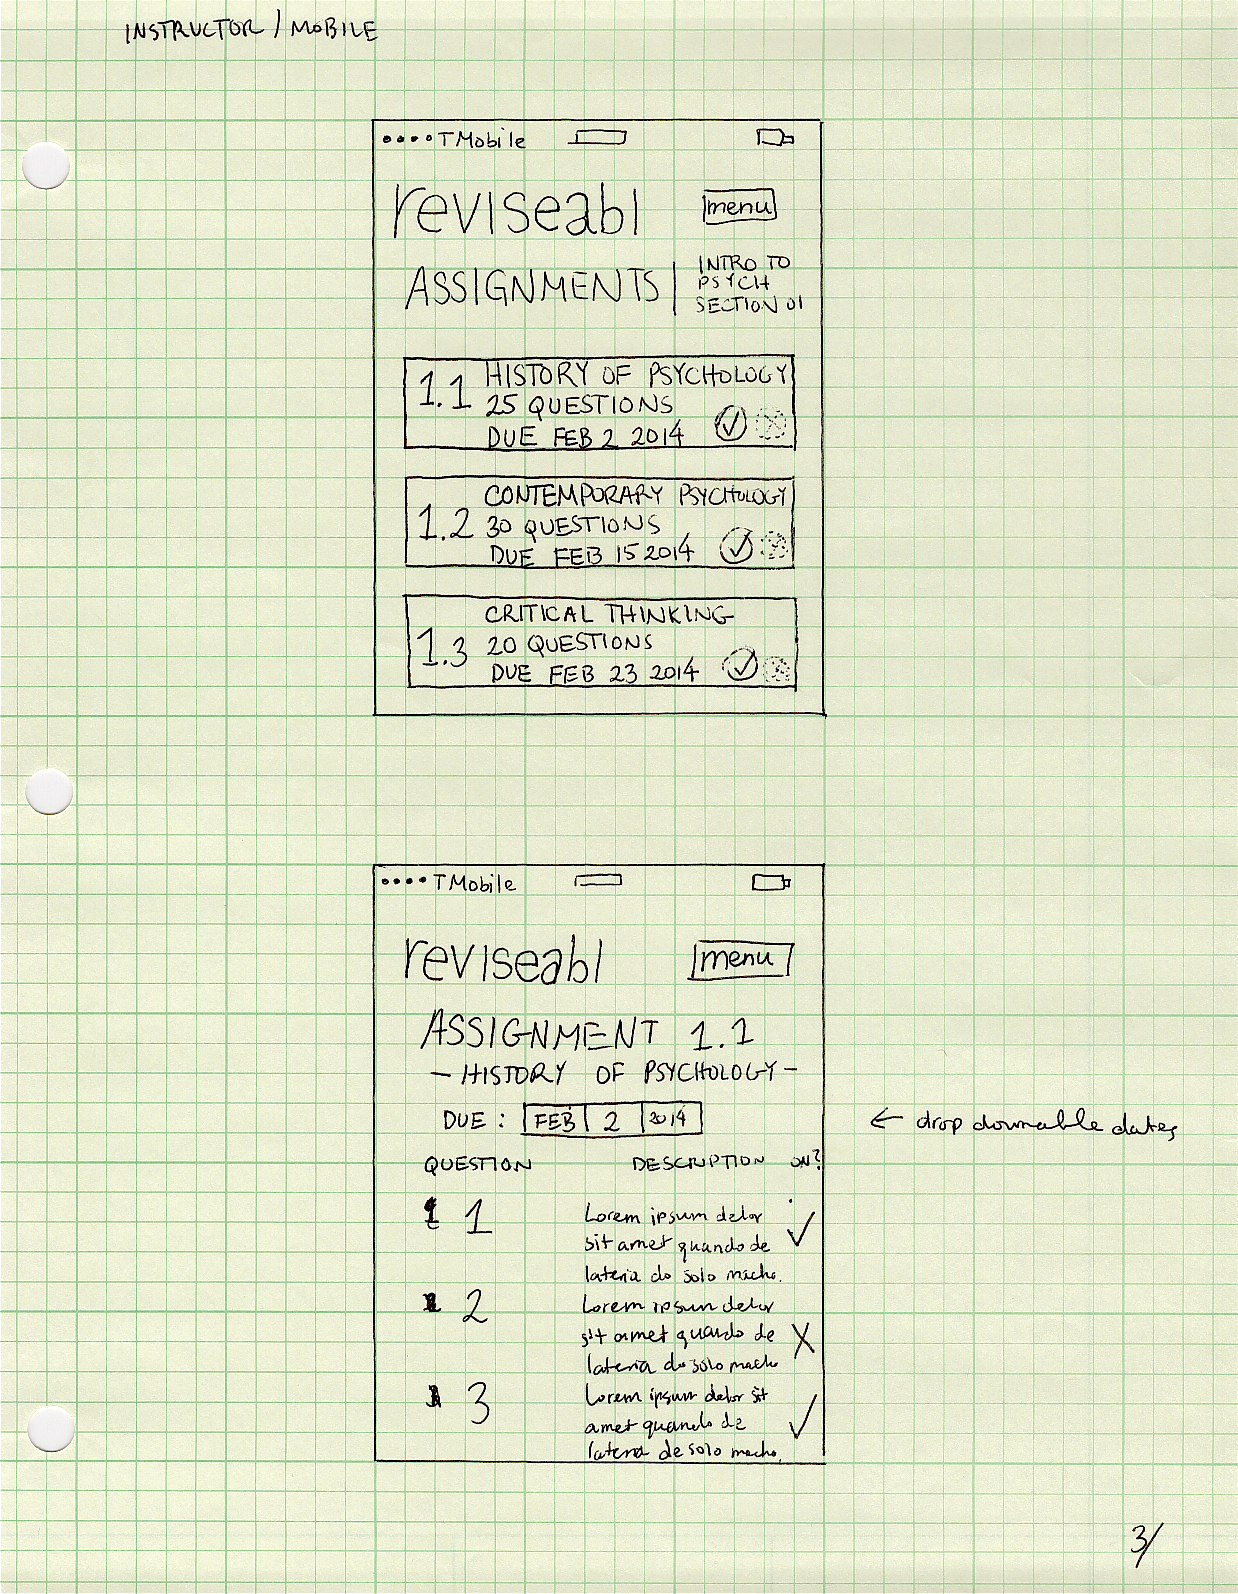 INSTRUCTOR / MOBILE
TMobile
reviseabl
menu
ASSIGNMENTS
INTRO TO
PSYCH
SECTION 01
1.1
HISTORY OF PSYCHOLOGY
25 QUESTIONS
DUE FEB 2 2014
1.2
CONTEMPORARY PSYCHOLOGY
30 QUESTIONS
DUE FEB 15 2014
1.3
CRITICAL THINKING
20 QUESTIONS
DUE FEB 23 2014
TMobile
reviseabl
menu
ASSIGNMENT 1.1
- HISTORY OF PSYCHOLOGY -
DUE : FEB 2 2014
← drop downable dates
QUESTION DESCRIPTION ON?
1 Lorem ipsum delor
sit amet quando de
lateria do solo macho.
2 Lorem ipsum delor
sit amet quando de
lateria do solo macho
3 Lorem ipsum delor sit
amet quando de
lateria de solo macho.
3/